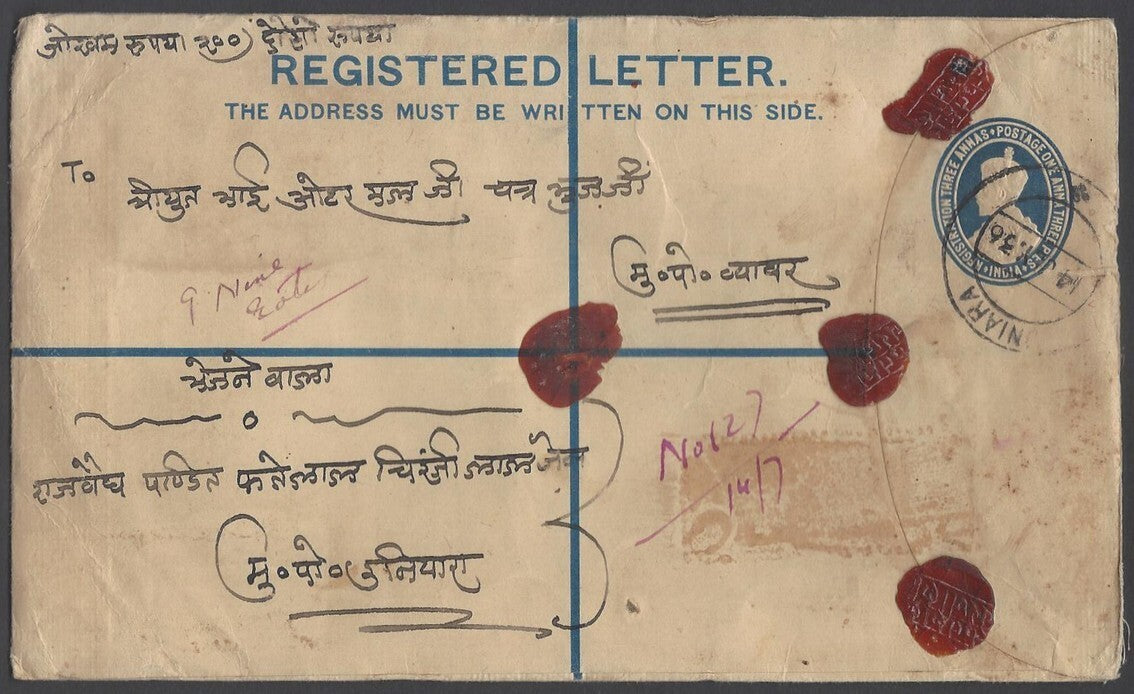 जोखम रुपया २००) दोसो रुपया
REGISTERED LETTER.
THE ADDRESS MUST BE WRITTEN ON THIS SIDE.
REGISTRATION THREE ANNAS POSTAGE ONE ANNA THREE PIES
INDIA
To
श्रीयुत भाई ओटर मल जी चत्र भुज जी
मु॰ पो॰ ब्यावर
NIARA
14
36
9 Nine
भेजने वाला
राजवैद्य पण्डित फतेलाल चिरंजीलाल जैन
No 127
14/7
मु॰ पो॰ उनियारा